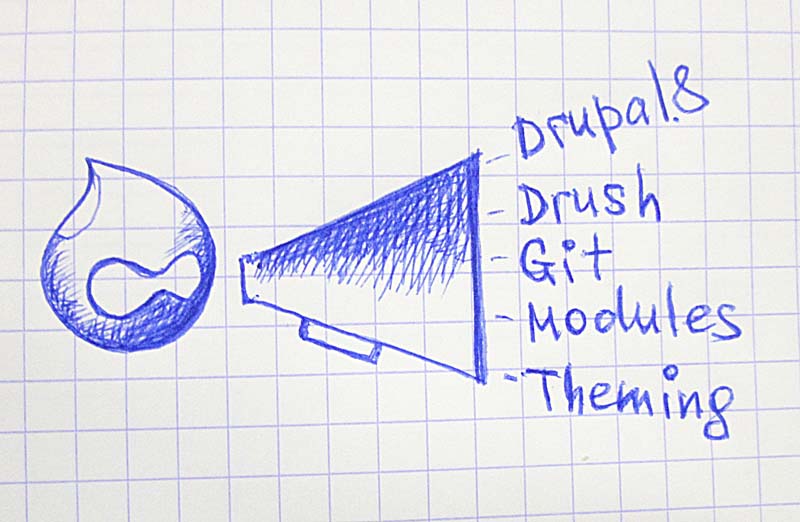 - Drupal.8
- Drush
- Git
- Modules
- Theming